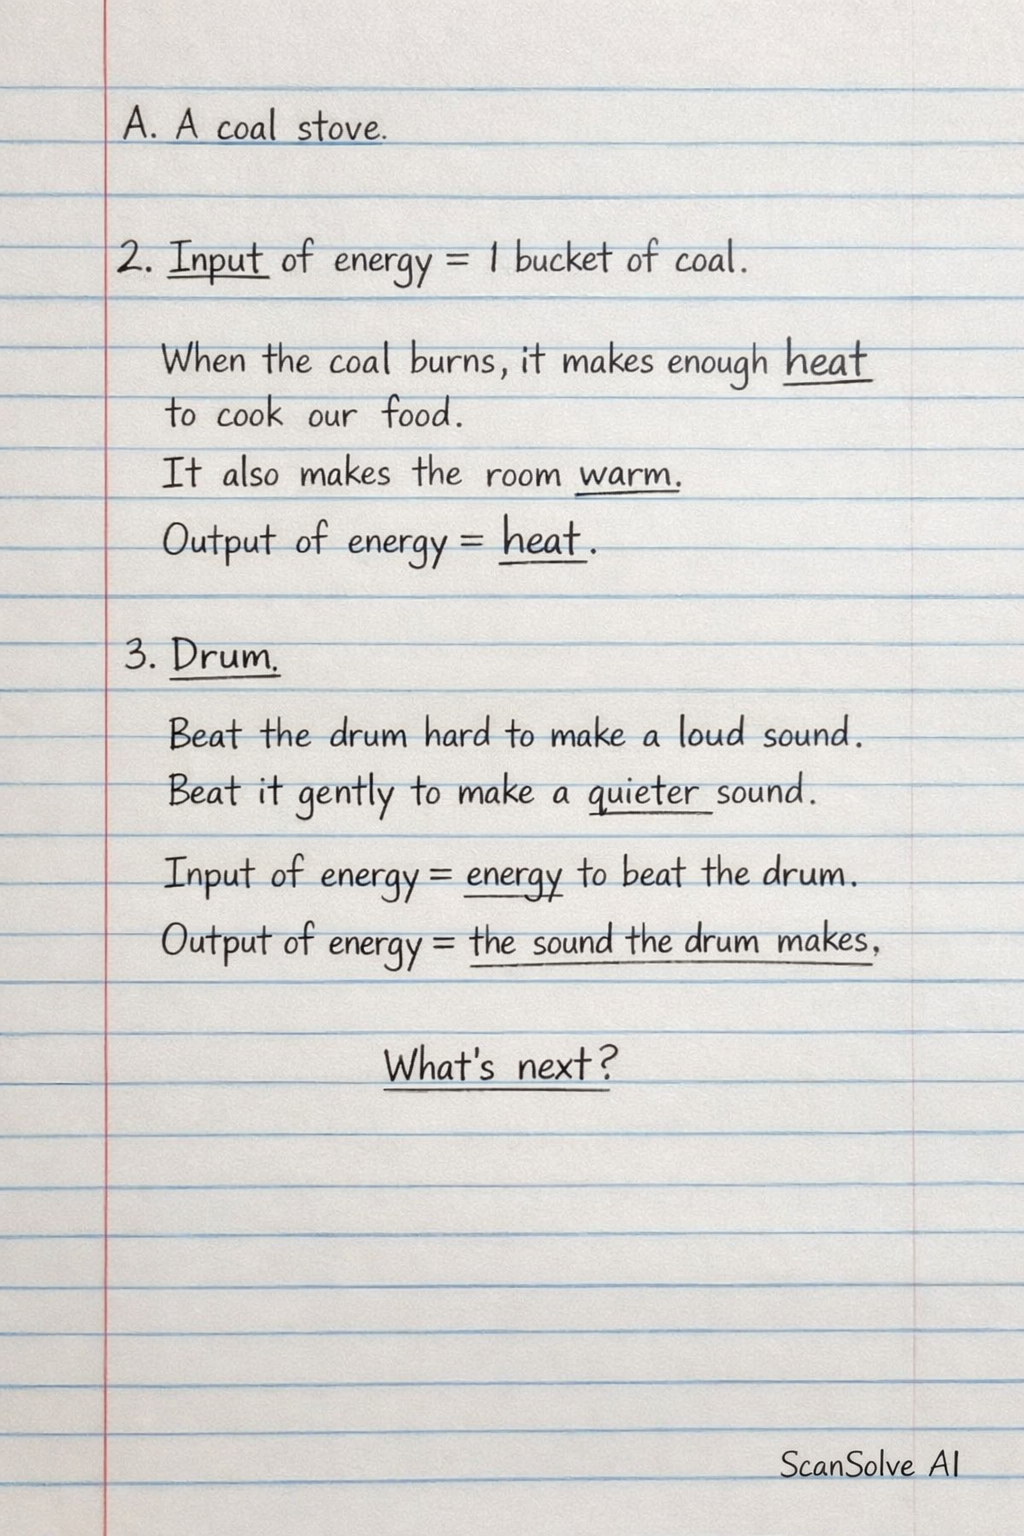 A. A coal stove.
2. Input of energy = 1 bucket of coal.
When the coal burns, it makes enough heat
to cook our food.
It also makes the room warm.
Output of energy = heat.
3. Drum.
Beat the drum hard to make a loud sound.
Beat it gently to make a quieter sound.
Input of energy = energy to beat the drum.
Output of energy = the sound the drum makes,
What's next?
ScanSolve AI